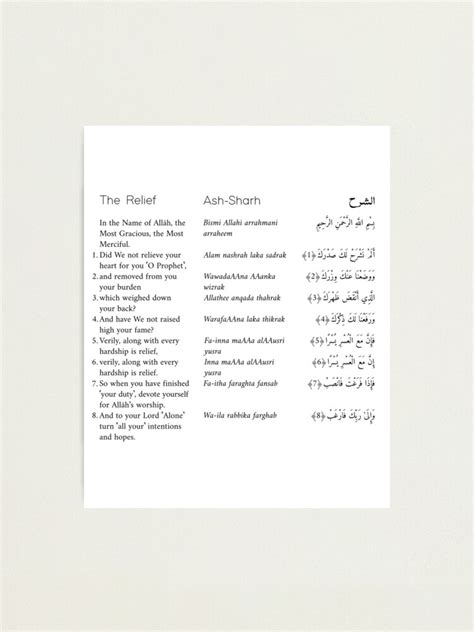 The Relief
In the Name of Allâh, the
Most Gracious, the Most
Merciful.
1. Did We not relieve your
heart for you 'O Prophet',
2. and removed from you
your burden
3. which weighed down
your back?
4. And have We not raised
high your fame?
5. Verily, along with every
hardship is relief,
6. verily, along with every
hardship is relief.
7. So when you have finished
'your duty', devote yourself
for Allâh's worship.
8. And to your Lord 'Alone'
turn 'all your' intentions
and hopes.
Ash-Sharh
Bismi Allahi arrahmani
arraheem
Alam nashrah laka sadrak
WawadaAAna AAanka
wizrak
Allathee anqada thahrak
WarafaAAna laka thikrak
Fa-inna maAAa alAAusri
yusra
Inna maAAa alAAusri
yusra
Fa-itha faraghta fansab
Wa-ila rabbika farghab
الشرح
بِسْمِ اللَّهِ الرَّحْمَٰنِ الرَّحِيمِ
أَلَمْ نَشْرَحْ لَكَ صَدْرَكَ ﴿1﴾
وَوَضَعْنَا عَنْكَ وِزْرَكَ ﴿2﴾
الَّذِي أَنْقَضَ ظَهْرَكَ ﴿3﴾
وَرَفَعْنَا لَكَ ذِكْرَكَ ﴿4﴾
فَإِنَّ مَعَ الْعُسْرِ يُسْرًا ﴿5﴾
إِنَّ مَعَ الْعُسْرِ يُسْرًا ﴿6﴾
فَإِذَا فَرَغْتَ فَانْصَبْ ﴿7﴾
وَإِلَىٰ رَبِّكَ فَارْغَبْ ﴿8﴾